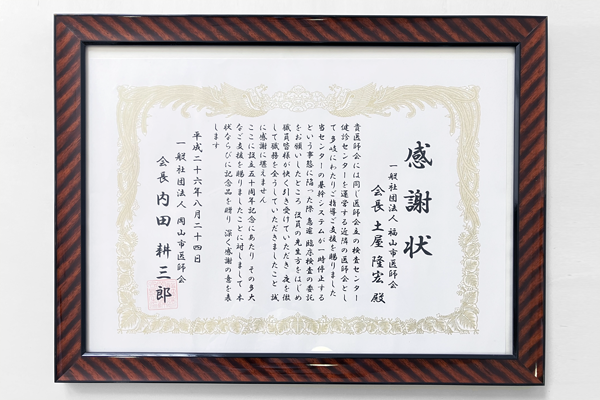 感謝状
一般社団法人 福山市医師会
会長 土屋 隆宏 殿
貴医師会には同じ医師会立の検査センター
健診センターを運営する近隣の医師会とし
て多岐にわたりご指導ご支援を賜りました
当センターの基幹システムが一時停止する
という事態に陥った際 急遽 臨床検査の委託
をお願いしたところ 役員の先生方をはじめ
職員皆様が快く引き受けていただき 夜を徹
して職務を全うしていただきましたこと 誠
に感謝に堪えません
ここに設立五十周年記念にあたり その多大
なご支援を賜りましたことに対しまして 本
状ならびに記念品を贈り 深く感謝の意を表
します
平成二十六年八月二十四日
一般社団法人 岡山市医師会
会長 内田 耕三郎